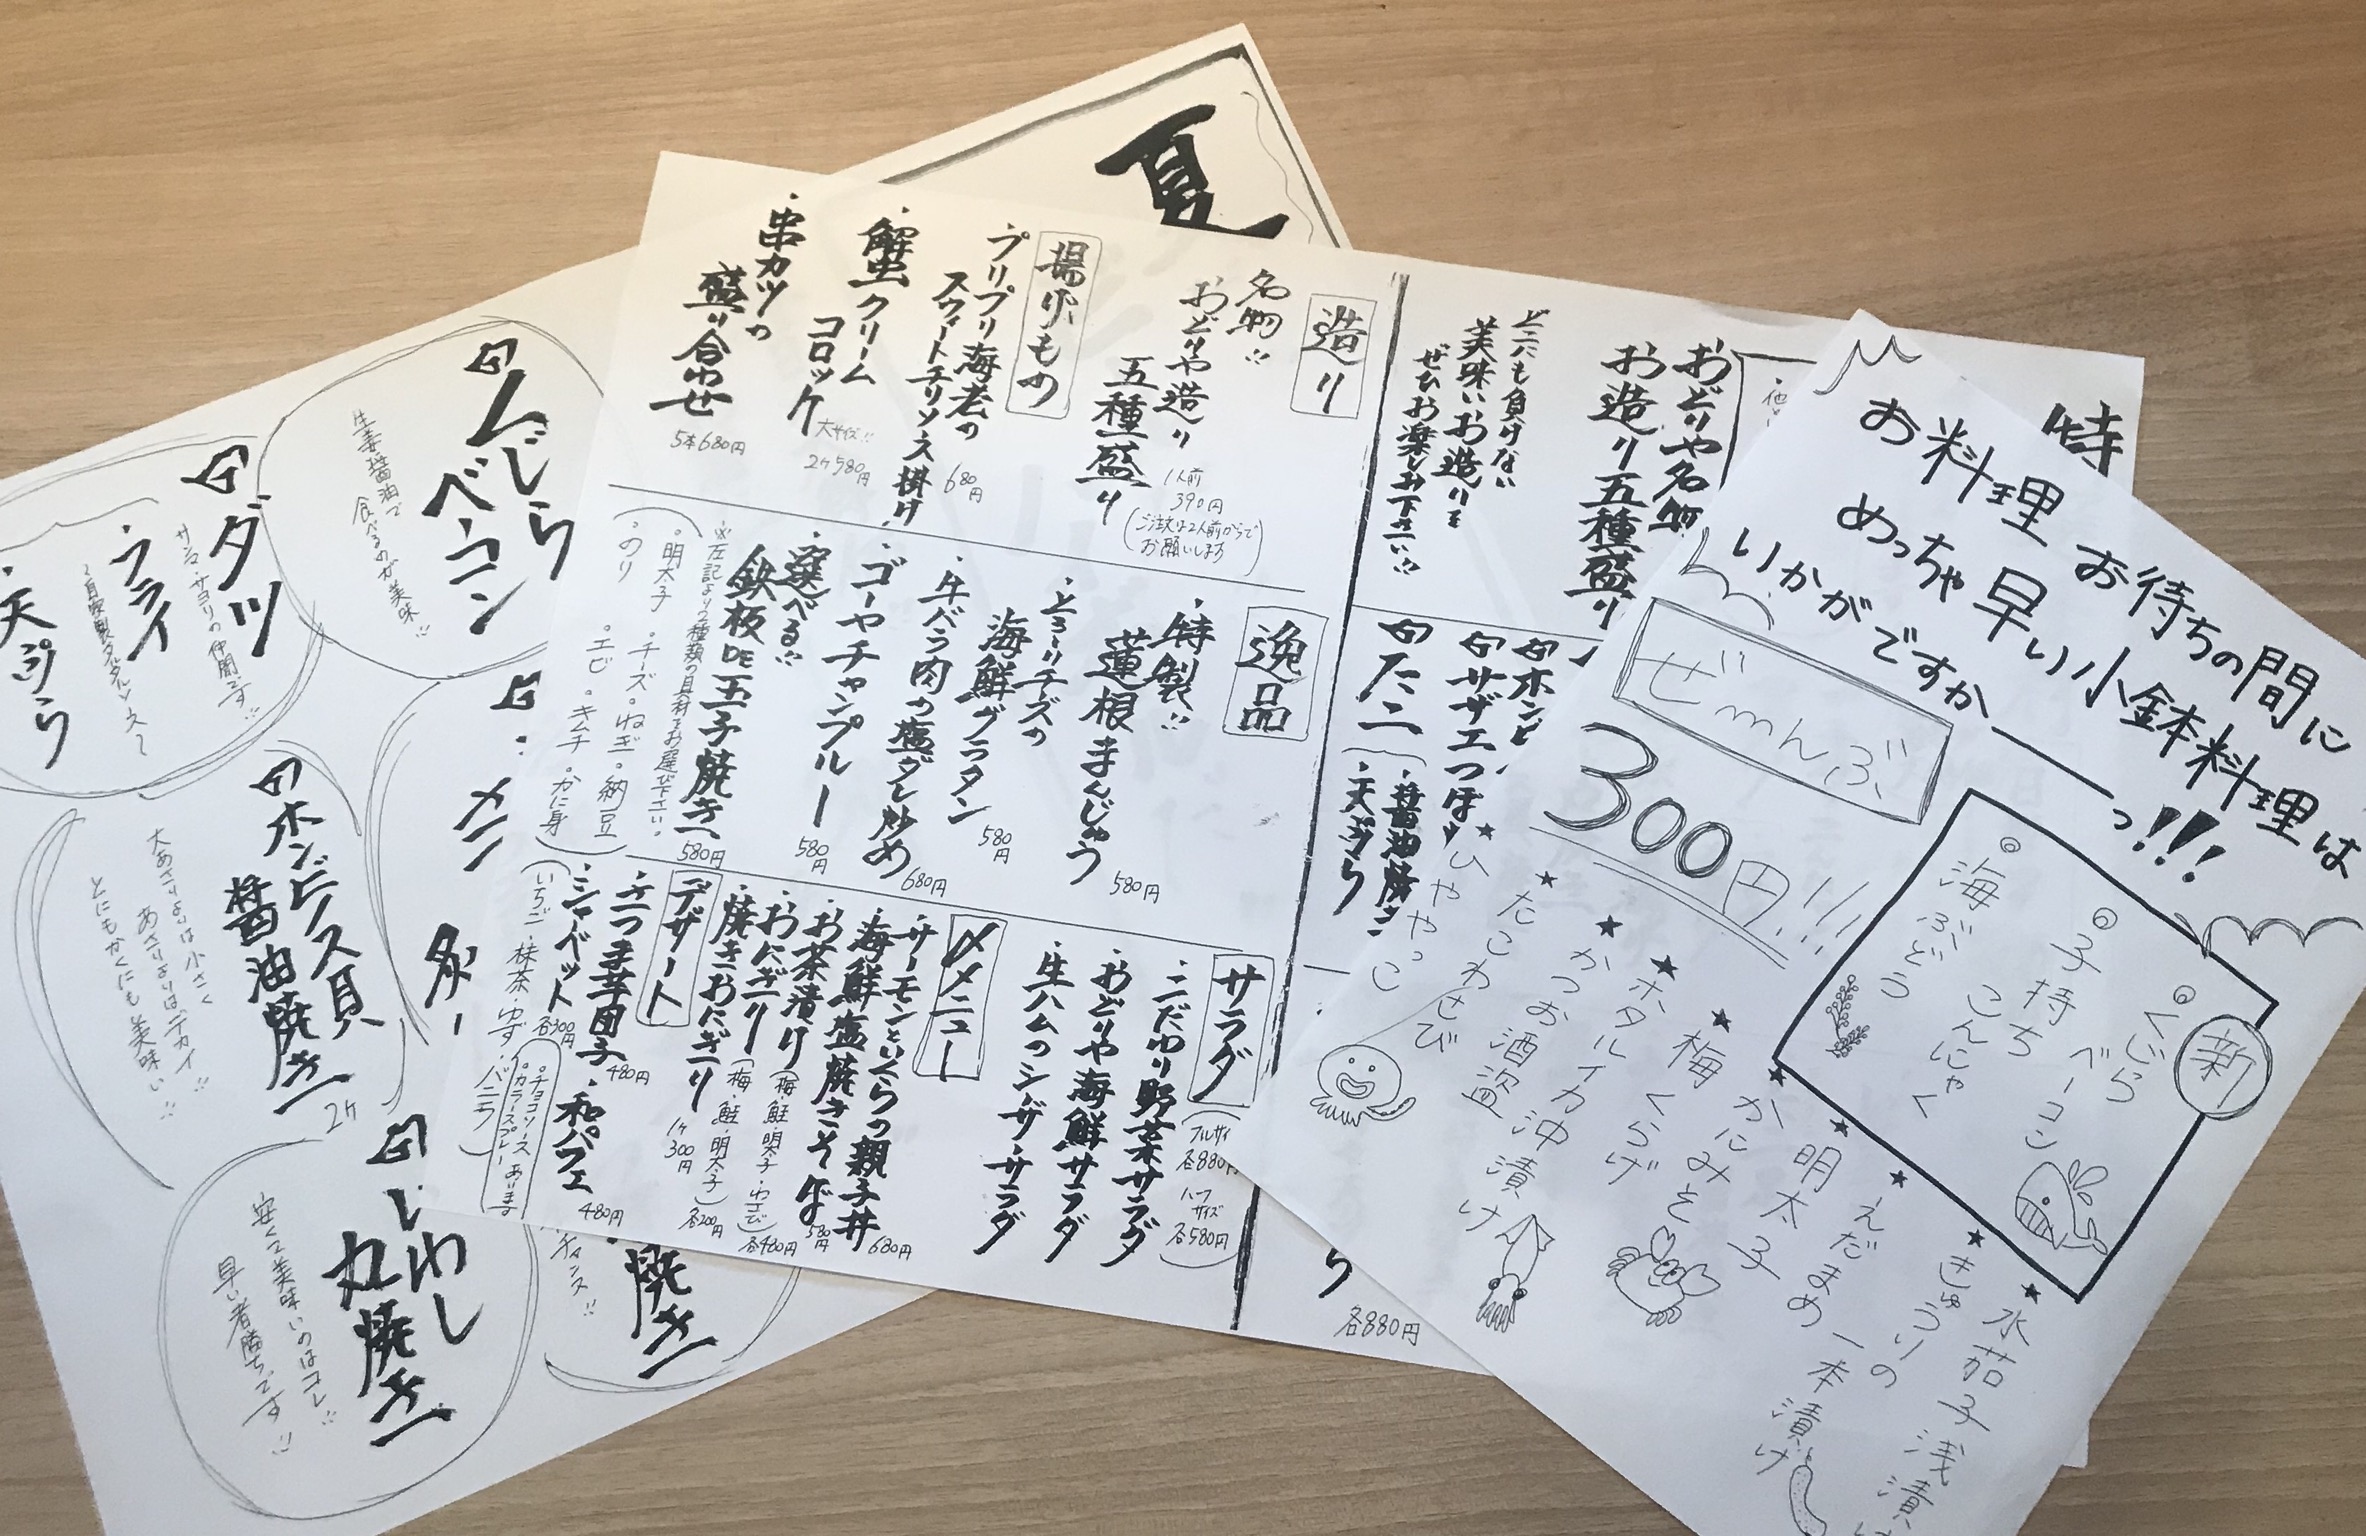 夏
特
お料理 お待ちの間に
めっちゃ早い小鉢料理は
いかがですかーーっ!!!
ぜーんぶ
300円!!!
新
◎くじら
ベーコン
◎子持ち
こんにゃく
◎海ぶどう
★水茄子浅漬け
★きゅうりの
一本漬け
★えだまめ
★明太子
★かにみそ
★梅くらげ
★ホタルイカ沖漬け
★かつお酒盗
★たこわさび
★ひややっこ
おどりや名物
お造り五種盛り
どこにも負けない
美味いお造りを
ぜひお楽しみ下さい!!
サザエつぼ
たこ
・醤油焼き
・天ぷら
各880円
造り
名物!!
おどりや造り
五種盛り
1人前
390円
(ご注文は2人前からで
お願いします)
揚げもの
・プリプリ海老の
スウィートチリソース掛け
680円
・蟹クリーム
コロッケ
大サイズ!!
2ケ580円
・串カツの
盛り合わせ
5本680円
逸品
・特製!!
蓮根まんじゅう
580円
・とろーりチーズの
海鮮グラタン
580円
・牛バラ肉の塩ダレ炒め
680円
・ゴーヤチャンプルー
580円
・選べる!!
鉄板DE玉子焼き
580円
※左記より2種類の具材をお選び下さい。
。明太子 。チーズ。ねぎ。納豆
。のり 。エビ 。キムチ 。かに身
サラダ
・こだわり野菜サラダ
・おどりや海鮮サラダ
・生ハムのシーザーサラダ
フルサイズ
各880円
ハーフ
サイズ
各580円
〆メニュー
・サーモンといくらの親子丼
680円
・海鮮塩焼きそば
580円
・お茶漬け
(梅・鮭・明太子・わさび)
各480円
・おにぎり
(梅・鮭・明太子)
各200円
・焼きおにぎり
1ケ
300円
デザート
・さつま芋団子
480円
・和パフェ
480円
・シャーベット
各300円
(いちご・抹茶・ゆず・バニラ)
。チョコソースあります
。カラースプレー
んじら
ベーコン
生姜醤油で
食べるのが美味!!
ダツ
サンマ・サヨリの仲間です!!
・フライ
〜自家製タルタルソース〜
・天ぷら
ホンビノス貝
醤油焼き
2ケ
大あさりよりは小さく
あさりよりはデカイ!!
とにもかくにも美味い!!
いわし
丸焼き
安くて美味いのはコレ!!
早い者勝ちです!!
焼き
チャンス!!